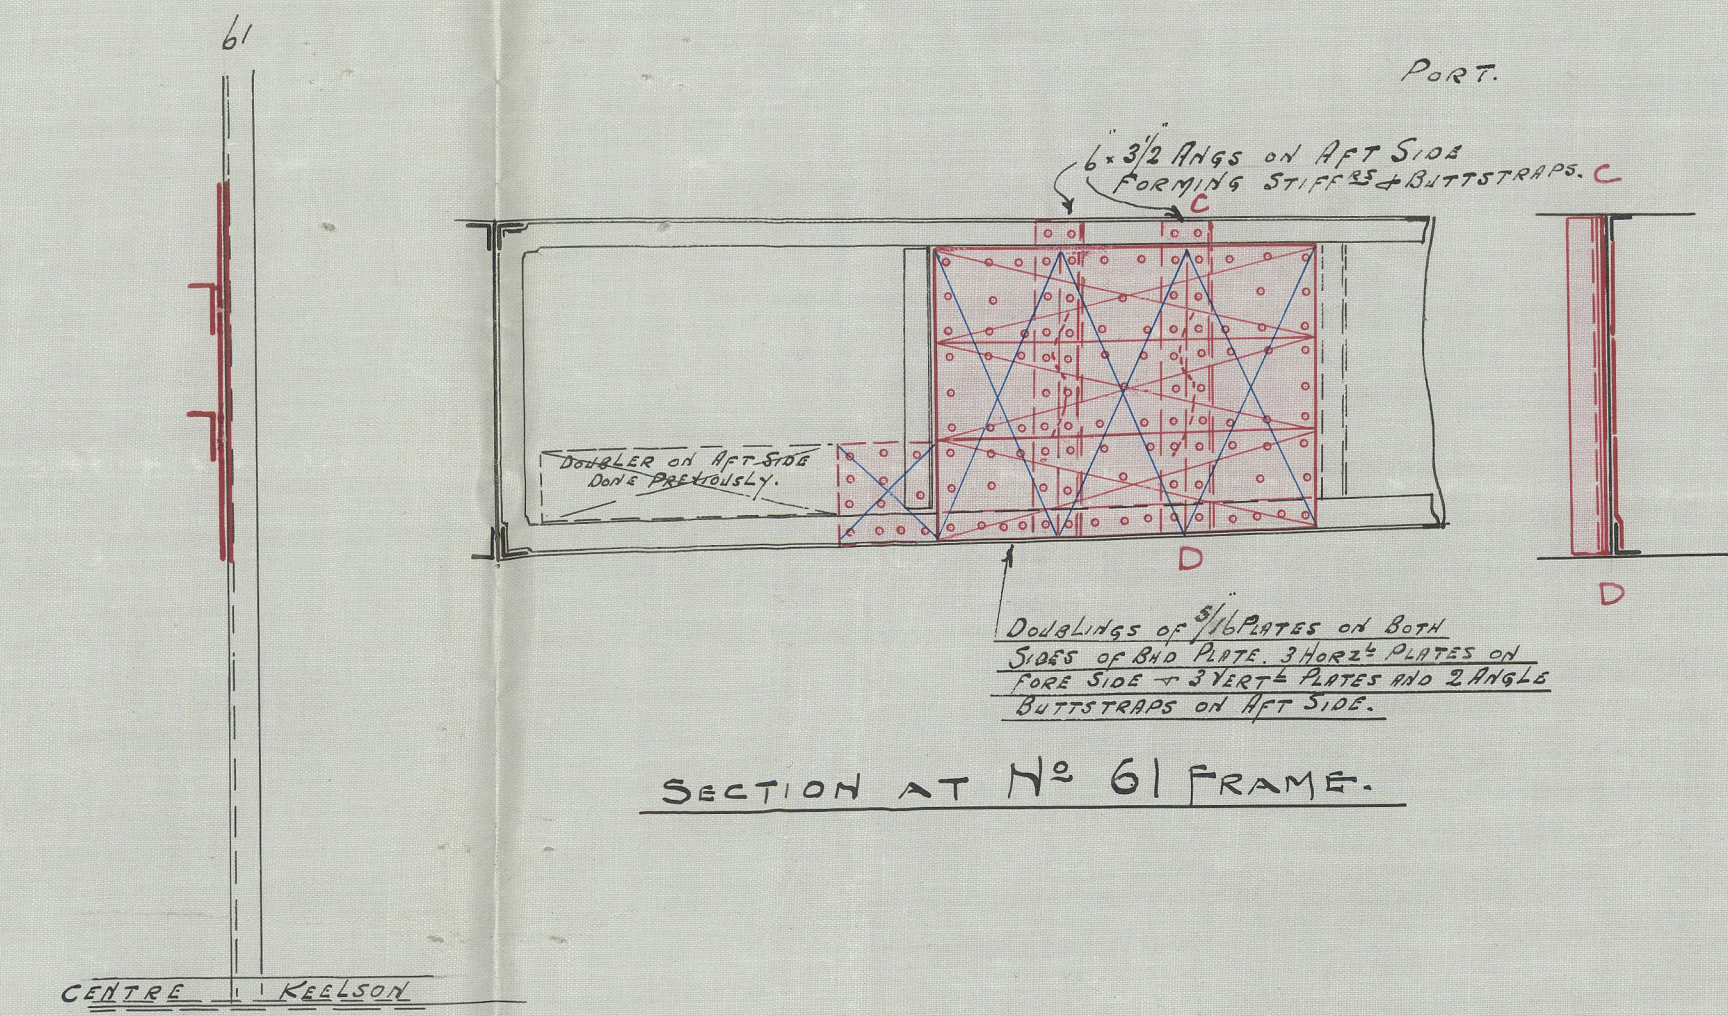 61
PORT.
6" × 3 1/2" ANGS ON AFT SIDE
FORMING STIFFRS & BUTTSTRAPS.
C
C
DOUBLER ON AFT SIDE
DONE PREVIOUSLY.
D
D
DOUBLINGS OF 5/16" PLATES ON BOTH
SIDES OF BHD PLATE. 3 HORZL PLATES ON
FORE SIDE & 3 VERTL PLATES AND 2 ANGLE
BUTTSTRAPS ON AFT SIDE.
SECTION AT No 61 FRAME.
CENTRE KEELSON